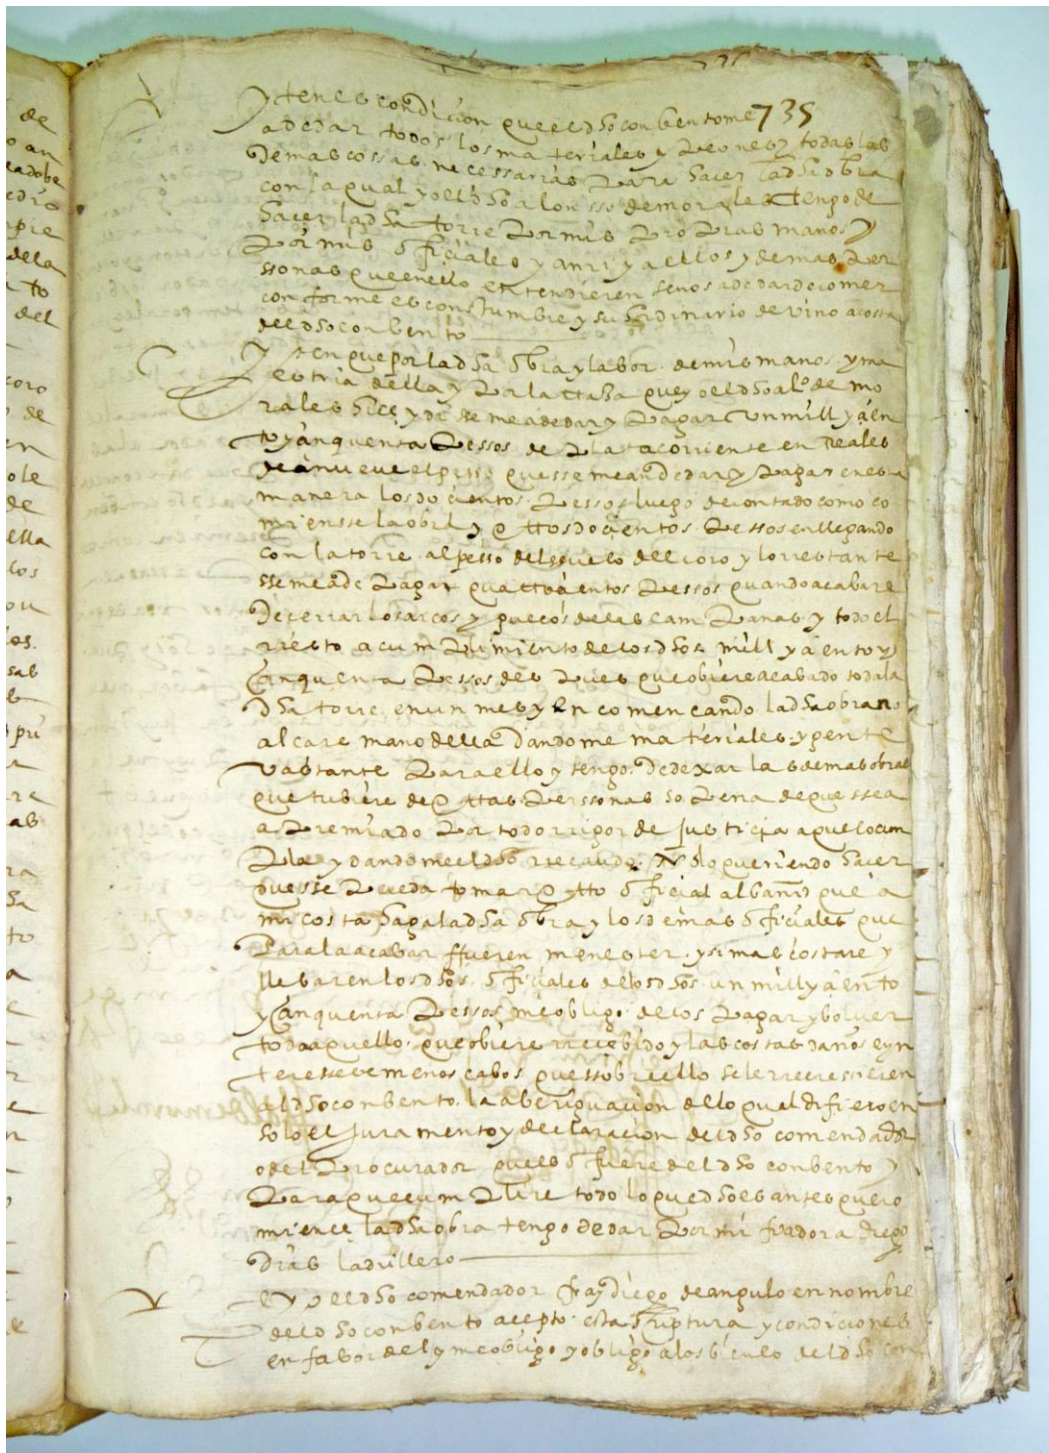 735
Yten es condicion que el dho conbento me
a de dar todos los materiales y peones y todas las
demas cossas necessarias para hacer la dha obra
con la qual yo el dho alonsso de morales tengo de
hacer la dha torre por mis propias manos y
por mis oficiales y a mi y a ellos y demas per
ssonas que en ello entendieren se nos a de dar de comer
conforme es constumbre y su hordinario de vino a costa
del dho conbento
Yten que por la dha obra y labor de mis manos y ma
estria della y por la traza que yo el dho alº de mo
rales hice y di se me a de dar y pagar un mill y cien
to y cinquenta pessos de plata corriente en rreales
de a nueve el pesso que sse me an de dar y pagar en esta
manera los docientos pessos luego de contado como co
miensse la obra y otros docientos pessos en llegando
con la torre al pesso del suelo del coro y lo rrestante
sse me a de pagar quatrocientos pessos quando acabare
de cerrar los arcos y guecos de las campanas y todo el
rresto a cumplimiento de los dhos mill y ciento y
cinquenta pessos des pues que obiere acabado toda la
dha torre en un mes y en comencando la dha obra no
alcare mano della dandome materiales y gente
vastante para ello y tengo de dexar las demas obras
que tubiere de otras perssonas so pena de que ssea
apremiado por todo rrigor de justicia a que lo cum
pla y dandome el dho rrecaudo no lo queriendo hacer
que sse pueda tomar otro oficial albañil que a
mi costa haga la dha obra y los demas oficiales que
para la acabar ffueren menester y si mas costare y
llebaren los dhos oficiales de los dhos un mill y ciento
y cinquenta pessos me obligo de los pagar y bolver
todo aquello que obiere rrecebido y las costas daños e yn
teresses e menos cabos que ssobre ello se le rrecrescieren
al dho conbento la aberiguacion de lo qual difiero en
solo el juramento y declaracion del dho comendador
o del procurador que es o fuere del dho conbento y
para que cumplire todo lo que dho es antes que co
mience la dha obra tengo de dar por mi fiador a diego
dias ladrillero
E yo el dho comendador fray diego de angulo en nombre
del dho conbento acepto esta scriptura y condiciones
en fabor del y me obligo y obligo a los bienes del dho con